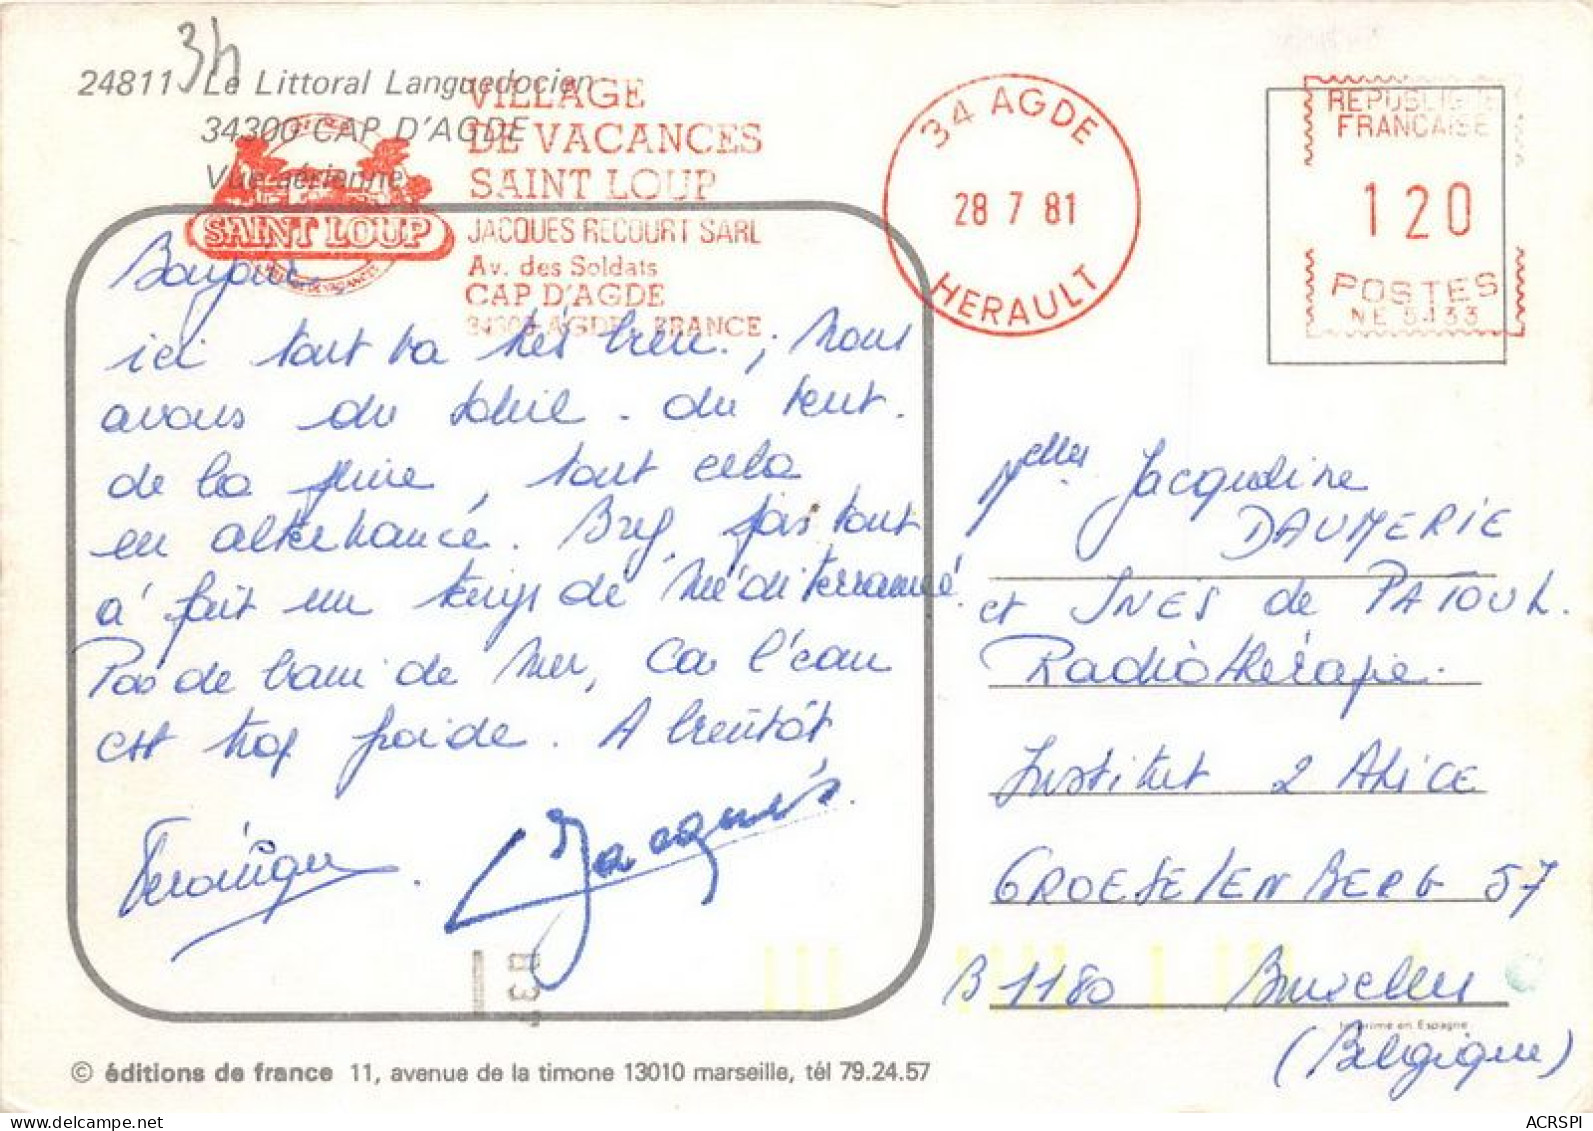 3h
24811 Le Littoral Languedocien
34300 CAP D'AGDE
Vue aérienne
SAINT LOUP
VILLAGE
DE VACANCES
SAINT LOUP
JACQUES RECOURT SARL
Av. des Soldats
CAP D'AGDE
34300 AGDE - FRANCE
34 AGDE
28 7 81
HERAULT
REPUBLIQUE
FRANCAISE
120
POSTES
NE 5133
Bonjour,
ici tout va très bien. ; Nous
avons du soleil. du vent.
de la pluie, tout cela
en alternance. Bref, pas tout
à fait un temps de Méditerranée.
Pas de bain de mer, Car l'eau
est trop froide. A bientôt
Véronique.
Jacques.
Melles Jacqueline
DAUMERIE
et INES de PATOUL.
Radiothérapie.
Institut 2 Alice
GROESELENBERG 57
B 1180 Bruxelles
(Belgique)
Imprime en Espagne
© éditions de france 11, avenue de la timone 13010 marseille, tél 79.24.57
ACRSPI